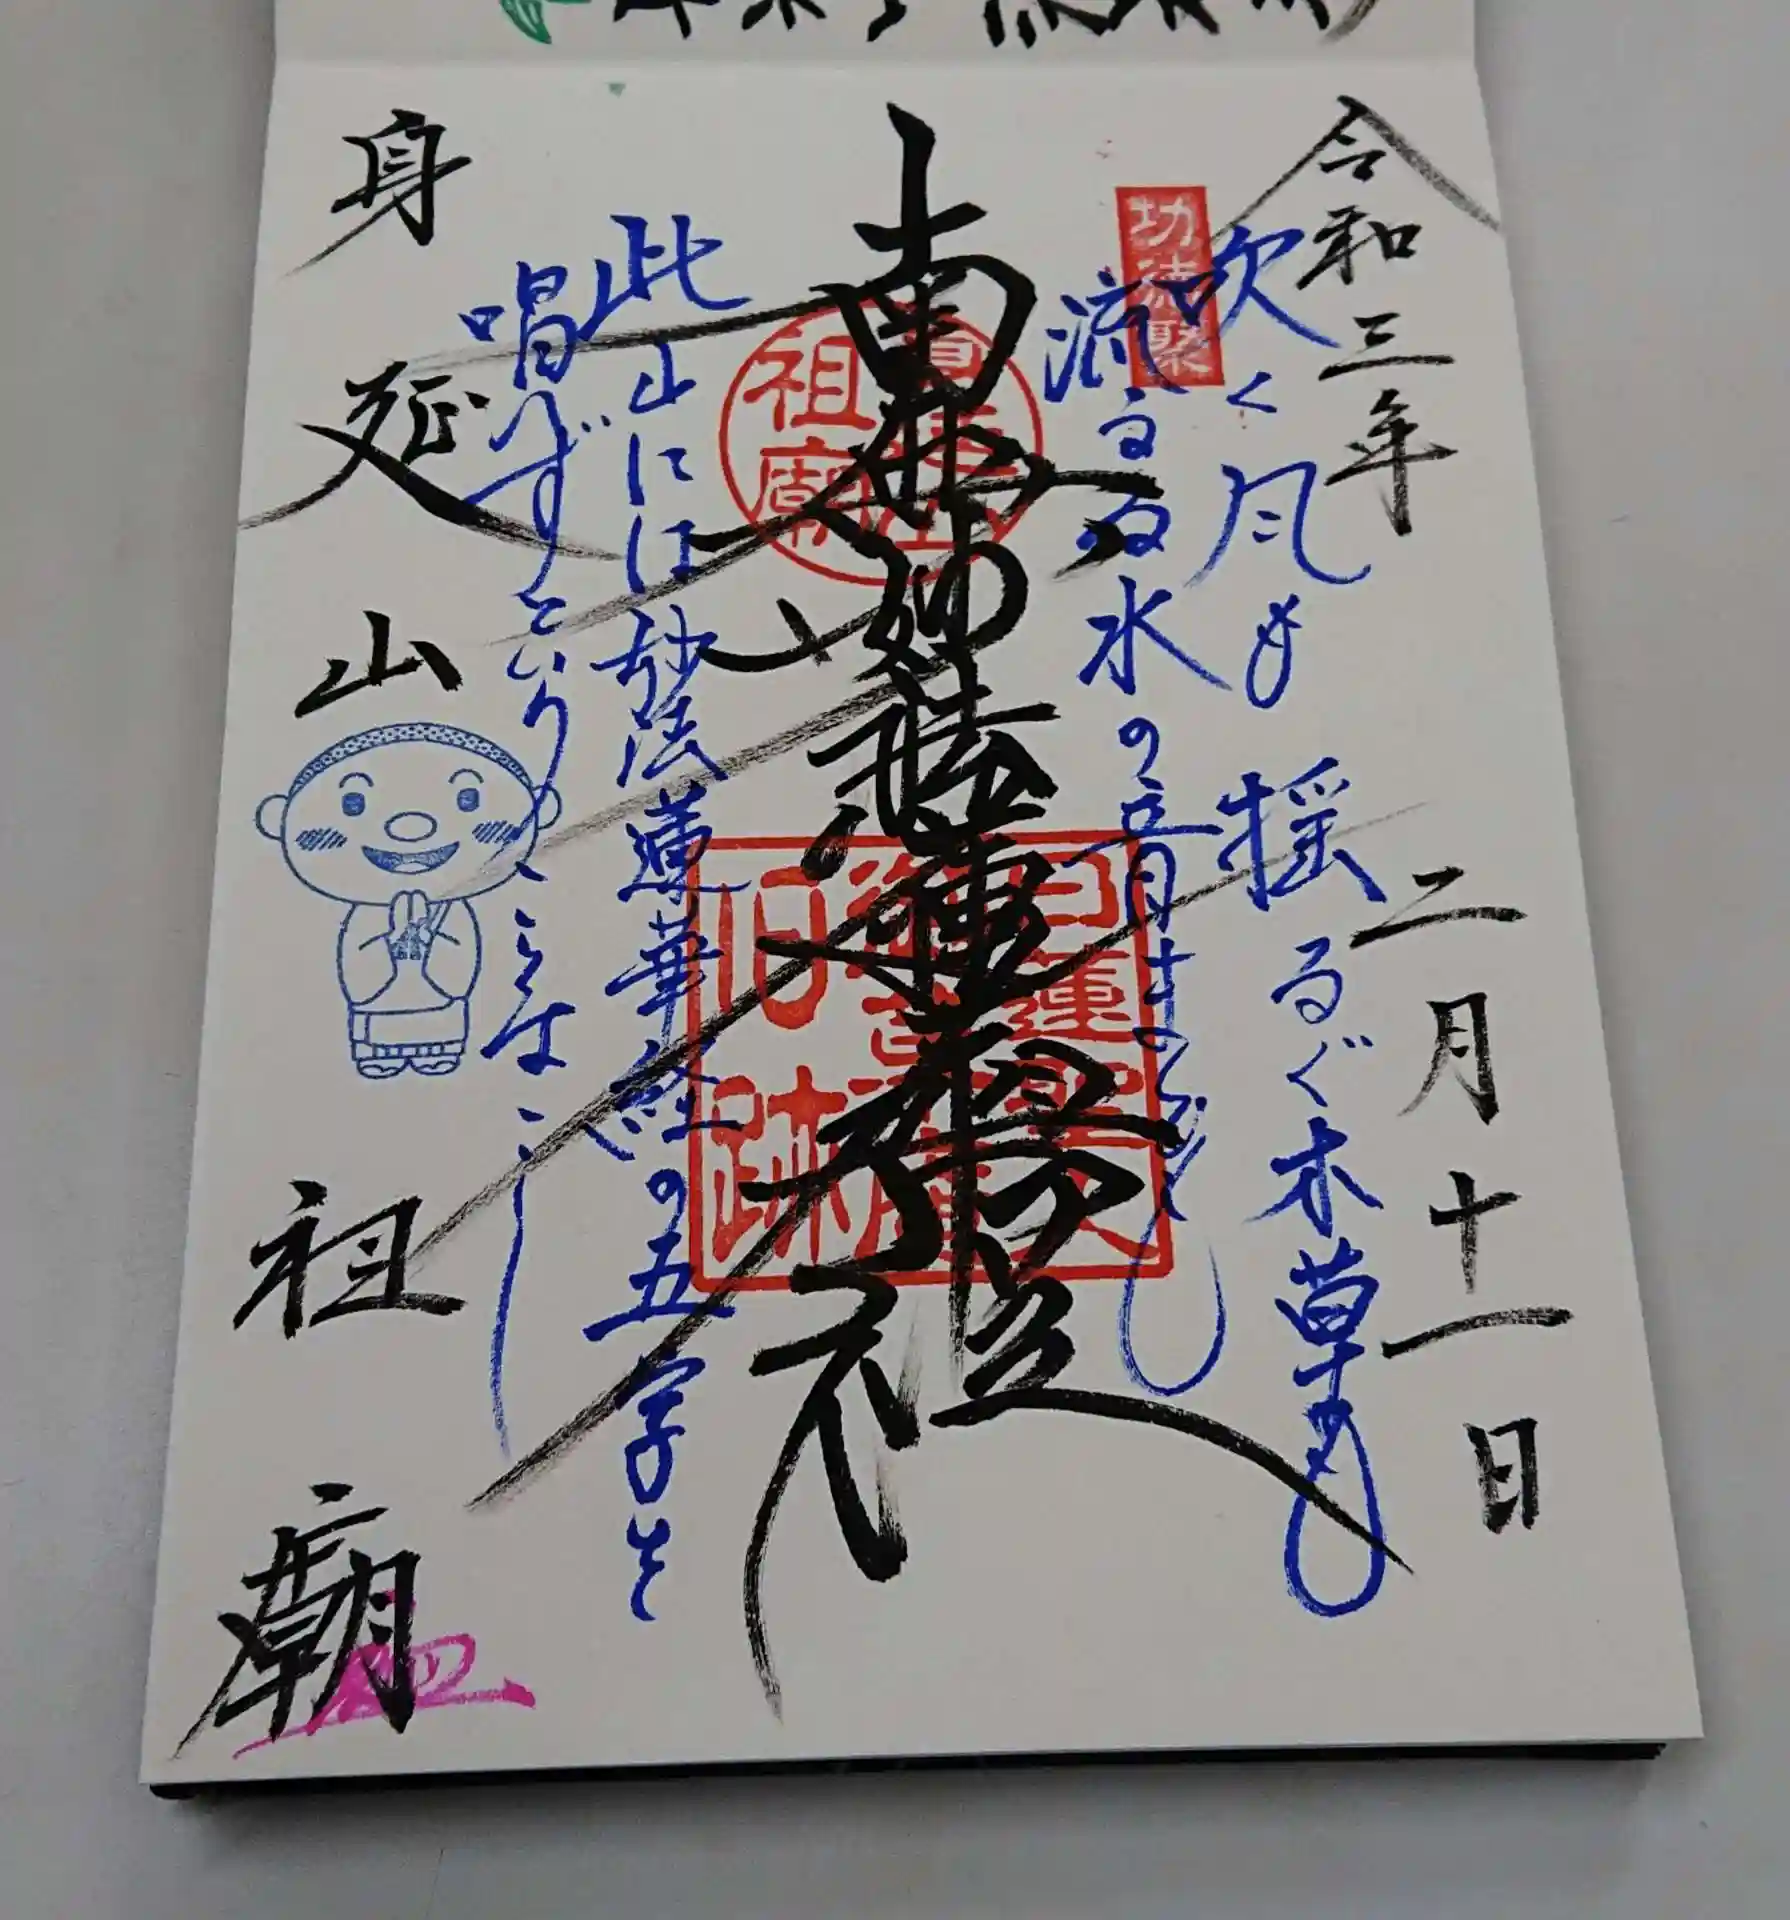 令和三年 二月十一日
吹く風も 揺るぐ木草も
流るる水の音までも
功徳聚
南無妙法蓮華経
日蓮聖人
御草庵
旧跡
身延山
祖廟
此山には妙法蓮華経の五字を
唱へずということなし
身延山 祖廟